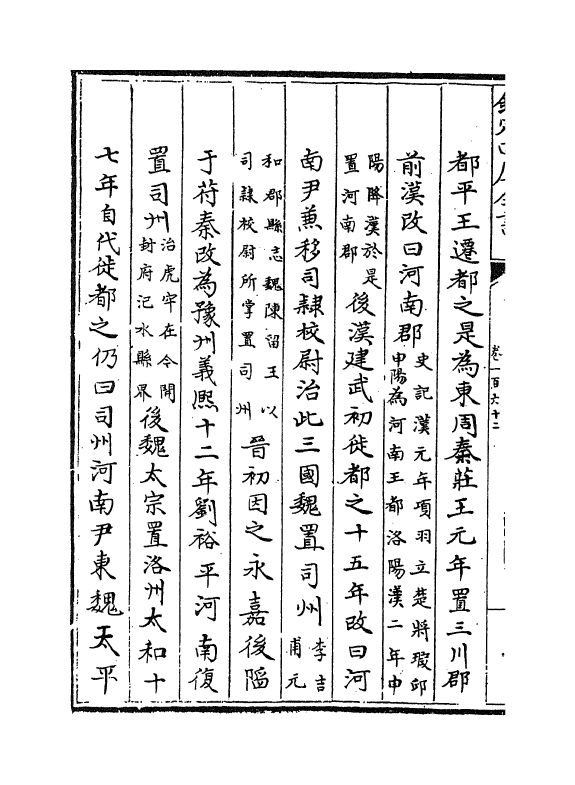 欽定四庫全書
卷一百六十二
都平王遷都之是為東周秦莊王元年置三川郡
前漢改曰河南郡史記漢元年項羽立楚將瑕邱申陽為河南王都洛陽漢二年申
陽降漢於是置河南郡後漢建武初徙都之十五年改曰河
南尹兼移司隸校尉治此三國魏置司州李吉甫元
和郡縣志魏陳留王以司隸校尉所掌置司州晉初因之永嘉後陷
于苻秦改為豫州義熙十二年劉裕平河南復
置司州治虎牢在今開封府汜水縣界後魏太宗置洛州太和十
七年自代徙都之仍曰司州河南尹東魏天平